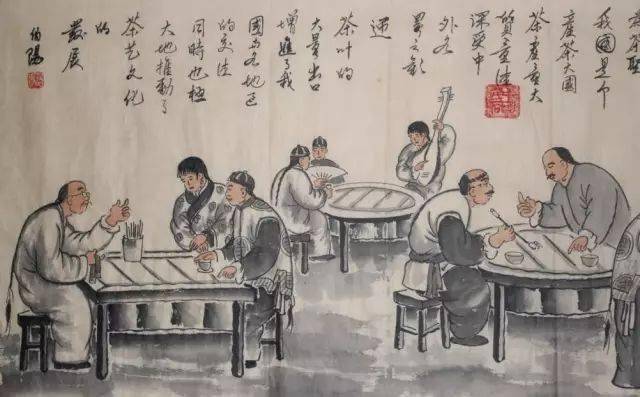 我國是个
產茶大國
茶產量大
質量佳
深受中
外各
界之歡
迎
茶叶的
大量出口
增進了我
國与各地区
的交往
同時也極
大地推動了
茶艺文化
的
發展
伯陽